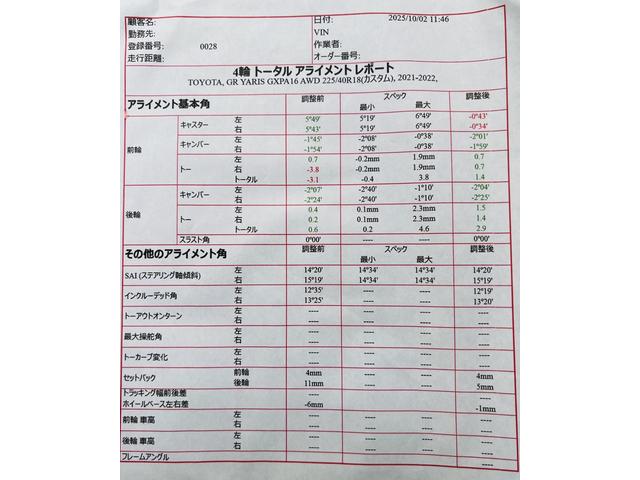 顧客名:
日付: 2025/10/02 11:46
勤務先:
VIN
登録番号: 0028
作業者:
走行距離:
オーダー番号:
4輪 トータル アライメント レポート
TOYOTA, GR YARIS GXPA16 AWD 225/40R18(カスタム), 2021-2022,
アライメント基本角 調整前 スペック 調整後
最小 最大
前輪 キャスター 左 5°49' 5°19' 6°49' -0°43'
右 5°43' 5°19' 6°49' -0°34'
キャンバー 左 -1°45' -2°08' -0°38' -2°01'
右 -1°54' -2°08' -0°38' -1°59'
トー 左 0.7 -0.2mm 1.9mm 0.7
右 -3.8 -0.2mm 1.9mm 0.7
トータル -3.1 -0.4 3.8 1.4
後輪 キャンバー 左 -2°07' -2°40' -1°10' -2°04'
右 -2°24' -2°40' -1°10' -2°25'
トー 左 0.4 0.1mm 2.3mm 1.5
右 0.2 0.1mm 2.3mm 1.4
トータル 0.6 0.2 4.6 2.9
スラスト角 0°00' ---- ---- 0°00'
その他のアライメント角 調整前 スペック 調整後
最小 最大
SAI (ステアリング軸傾斜) 左 14°20' 14°34' 14°34' 14°20'
右 15°19' 14°34' 14°34' 15°19'
インクルーデッド角 左 12°35' ---- ---- 12°19'
右 13°25' ---- ---- 13°20'
トーアウトオンターン 左 ---- ---- ---- ----
右 ---- ---- ---- ----
最大操舵角 左 ---- ---- ---- ----
右 ---- ---- ---- ----
トーカーブ変化 左 ---- ---- ---- ----
右 ---- ---- ---- ----
セットバック 前輪 4mm ---- ---- 4mm
後輪 11mm ---- ---- 5mm
トラッキング幅前後差 ---- ---- ---- ----
ホイールベース左右差 -6mm ---- ---- -1mm
前輪 車高 左 ---- ---- ---- ----
右 ---- ---- ---- ----
後輪 車高 左 ---- ---- ---- ----
右 ---- ---- ---- ----
フレームアングル ---- ---- ---- ----